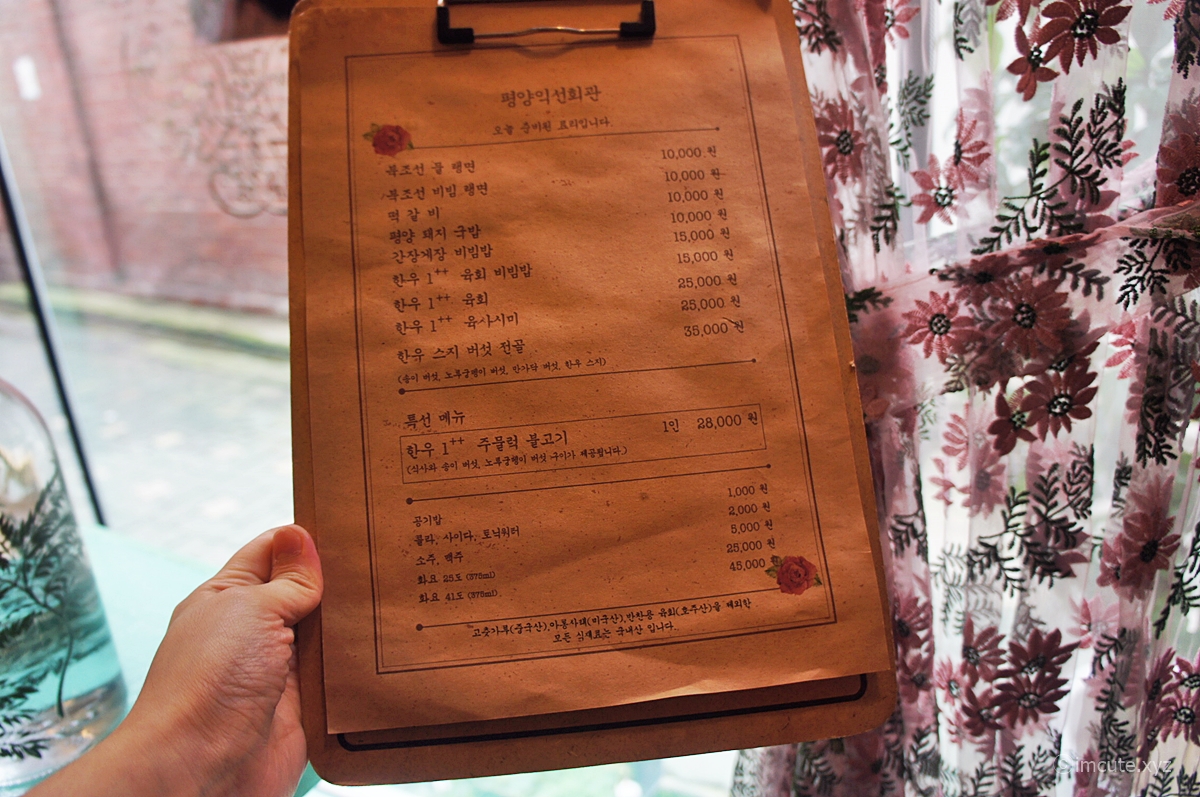 평양익선회관
오늘 준비된 요리입니다.
북조선 물 랭면 10,000 원
북조선 비빔 랭면 10,000 원
떡 갈 비 10,000 원
평양 돼지 국밥 10,000 원
간장게장 비빔밥 15,000 원
한우 1++ 육회 비빔밥 15,000 원
한우 1++ 육회 25,000 원
한우 1++ 육사시미 25,000 원
한우 스지 버섯 전골 35,000 원
(송이 버섯, 노루궁뎅이 버섯, 만가닥 버섯, 한우 스지)
특선 메뉴
한우 1++ 주물럭 불고기 1인 28,000 원
(식사와 송이 버섯, 노루궁뎅이 버섯 구이가 제공됩니다.)
공기밥 1,000 원
콜라, 사이다, 토닉워터 2,000 원
소주, 맥주 5,000 원
화요 25도 (375ml) 25,000 원
화요 41도 (375ml) 45,000 원
고춧가루(중국산),아롱사태(미국산),반찬용 육회(호주산)을 제외한
모든 식재료는 국내산 입니다.
simcute.xyz